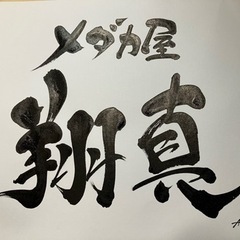 メダカ屋
翔真